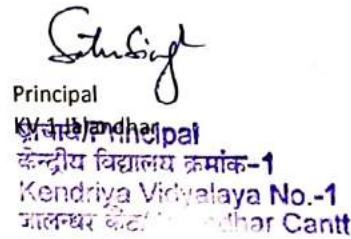 Principal
KV-1 Jalandhar
प्राचार्य/Principal
केन्द्रीय विद्यालय क्रमांक-1
Kendriya Vidyalaya No.-1
जालन्धर कैंट/ Cantt